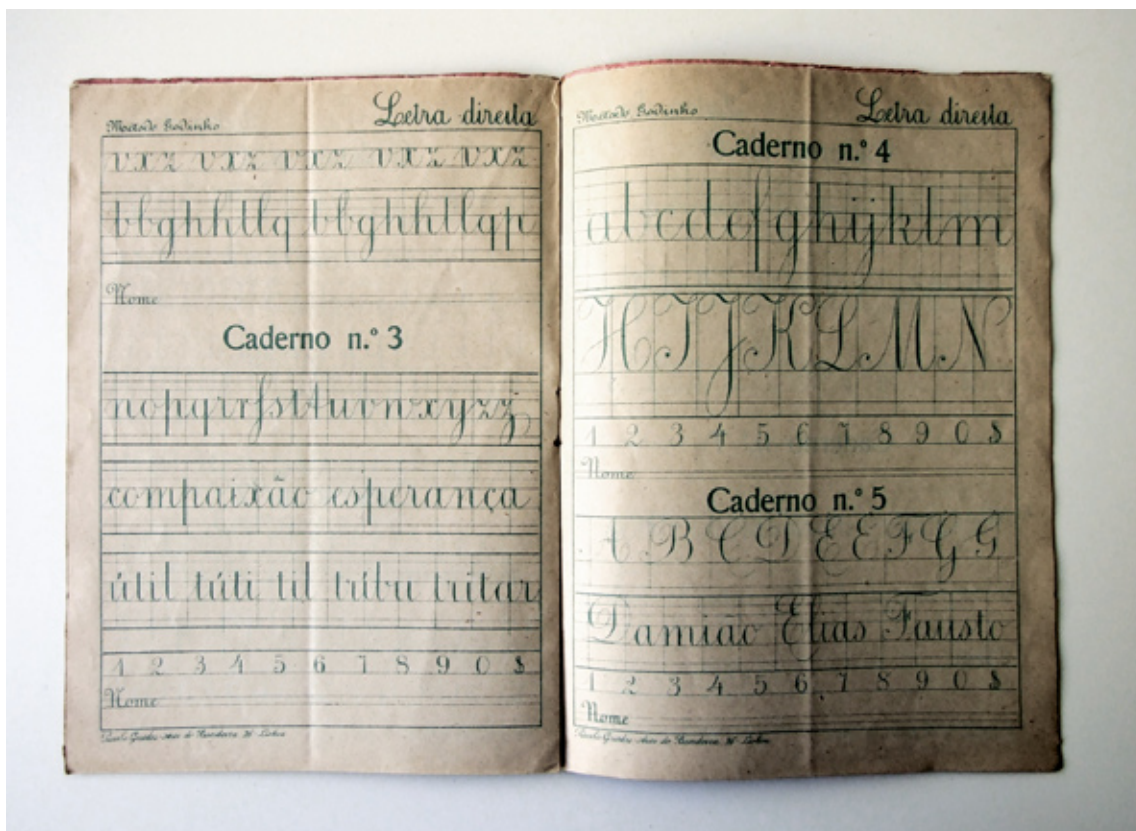 Methodo Godinho
Letra direita
vxz vxz vxz vxz vxz
bbghhllq bbghhllqp
Nome
Caderno n.º 3
nopqrrsstuvwxyzz
compaixão esperança
útil túti til tribu tritar
1 2 3 4 5 6 7 8 9 0 $
Nome
Lisboa
Methodo Godinho
Letra direita
Caderno n.º 4
abcdefghijklm
H I J K L M N
1 2 3 4 5 6 7 8 9 0 $
Nome
Caderno n.º 5
A B C D E E F G G
Damião Elias Fausto
1 2 3 4 5 6 7 8 9 0 $
Nome
Lisboa